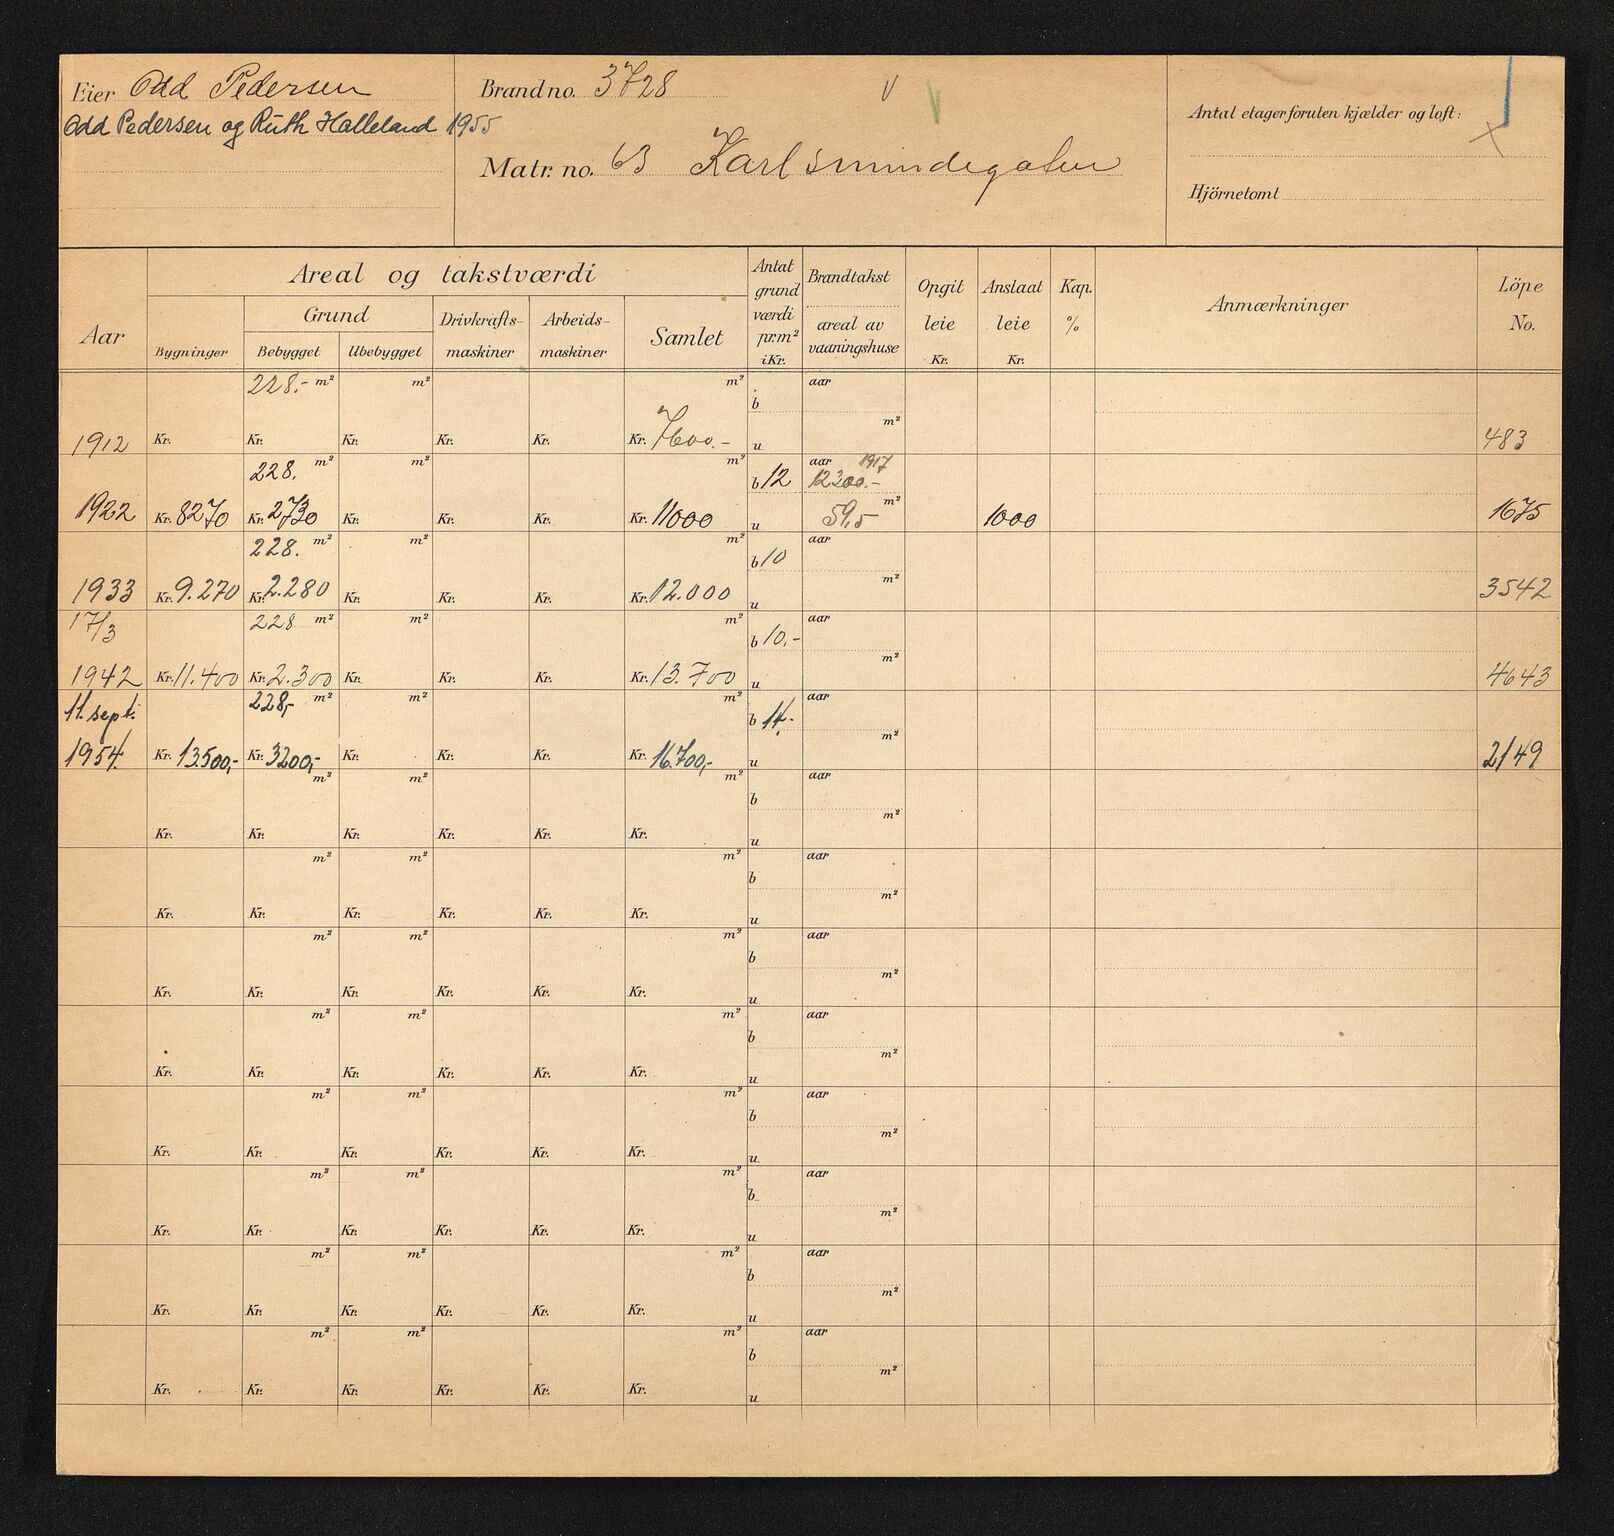 Eier Odd Pedersen
Odd Pedersen og Ruth Halleland 1955
Brand no. 3728
Matr. no. 63 Karlsmindegaten
Antal etager foruten kjælder og loft:
Hjörnetomt
Aar
Areal og takstværdi
Bygninger
Grund
Bebygget Ubebygget
Drivkrafts-
maskiner
Arbeids-
maskiner
Samlet
Antat
grund
værdi
pr. m²
i Kr.
Brandtakst
areal av
vaaningshuse
Opgit
leie
Kr.
Anslaat
leie
Kr.
Kap.
%
Anmærkninger
Löpe
No.
228.- m² m² m² b aar
m²
1912 Kr. Kr. Kr. Kr. Kr. Kr. 7600.- u 483
228. m² m² m² b 12 aar 1917
12200.-
m²
1922 Kr. 8270 Kr. 2730 Kr. Kr. Kr. Kr. 11000 u 59,5 1000 1675
228. m² m² m² b 10 aar
m²
1933 Kr. 9.270 Kr. 2.280 Kr. Kr. Kr. Kr. 12.000 u 3542
17/3 228 m² m² m² b 10.- aar
m²
1942 Kr. 11.400 Kr. 2.300 Kr. Kr. Kr. Kr. 13.700 u 4643
11. sept. 228,- m² m² m² b 14.- aar
m²
1954. Kr. 13.500,- Kr. 3200,- Kr. Kr. Kr. Kr. 16.700,- u 2149
m² m² m² b aar
m²
Kr. Kr. Kr. Kr. Kr. Kr. u
m² m² m² b aar
m²
Kr. Kr. Kr. Kr. Kr. Kr. u
m² m² m² b aar
m²
Kr. Kr. Kr. Kr. Kr. Kr. u
m² m² m² b aar
m²
Kr. Kr. Kr. Kr. Kr. Kr. u
m² m² m² b aar
m²
Kr. Kr. Kr. Kr. Kr. Kr. u
m² m² m² b aar
m²
Kr. Kr. Kr. Kr. Kr. Kr. u
m² m² m² b aar
m²
Kr. Kr. Kr. Kr. Kr. Kr. u
m² m² m² b aar
m²
Kr. Kr. Kr. Kr. Kr. Kr. u